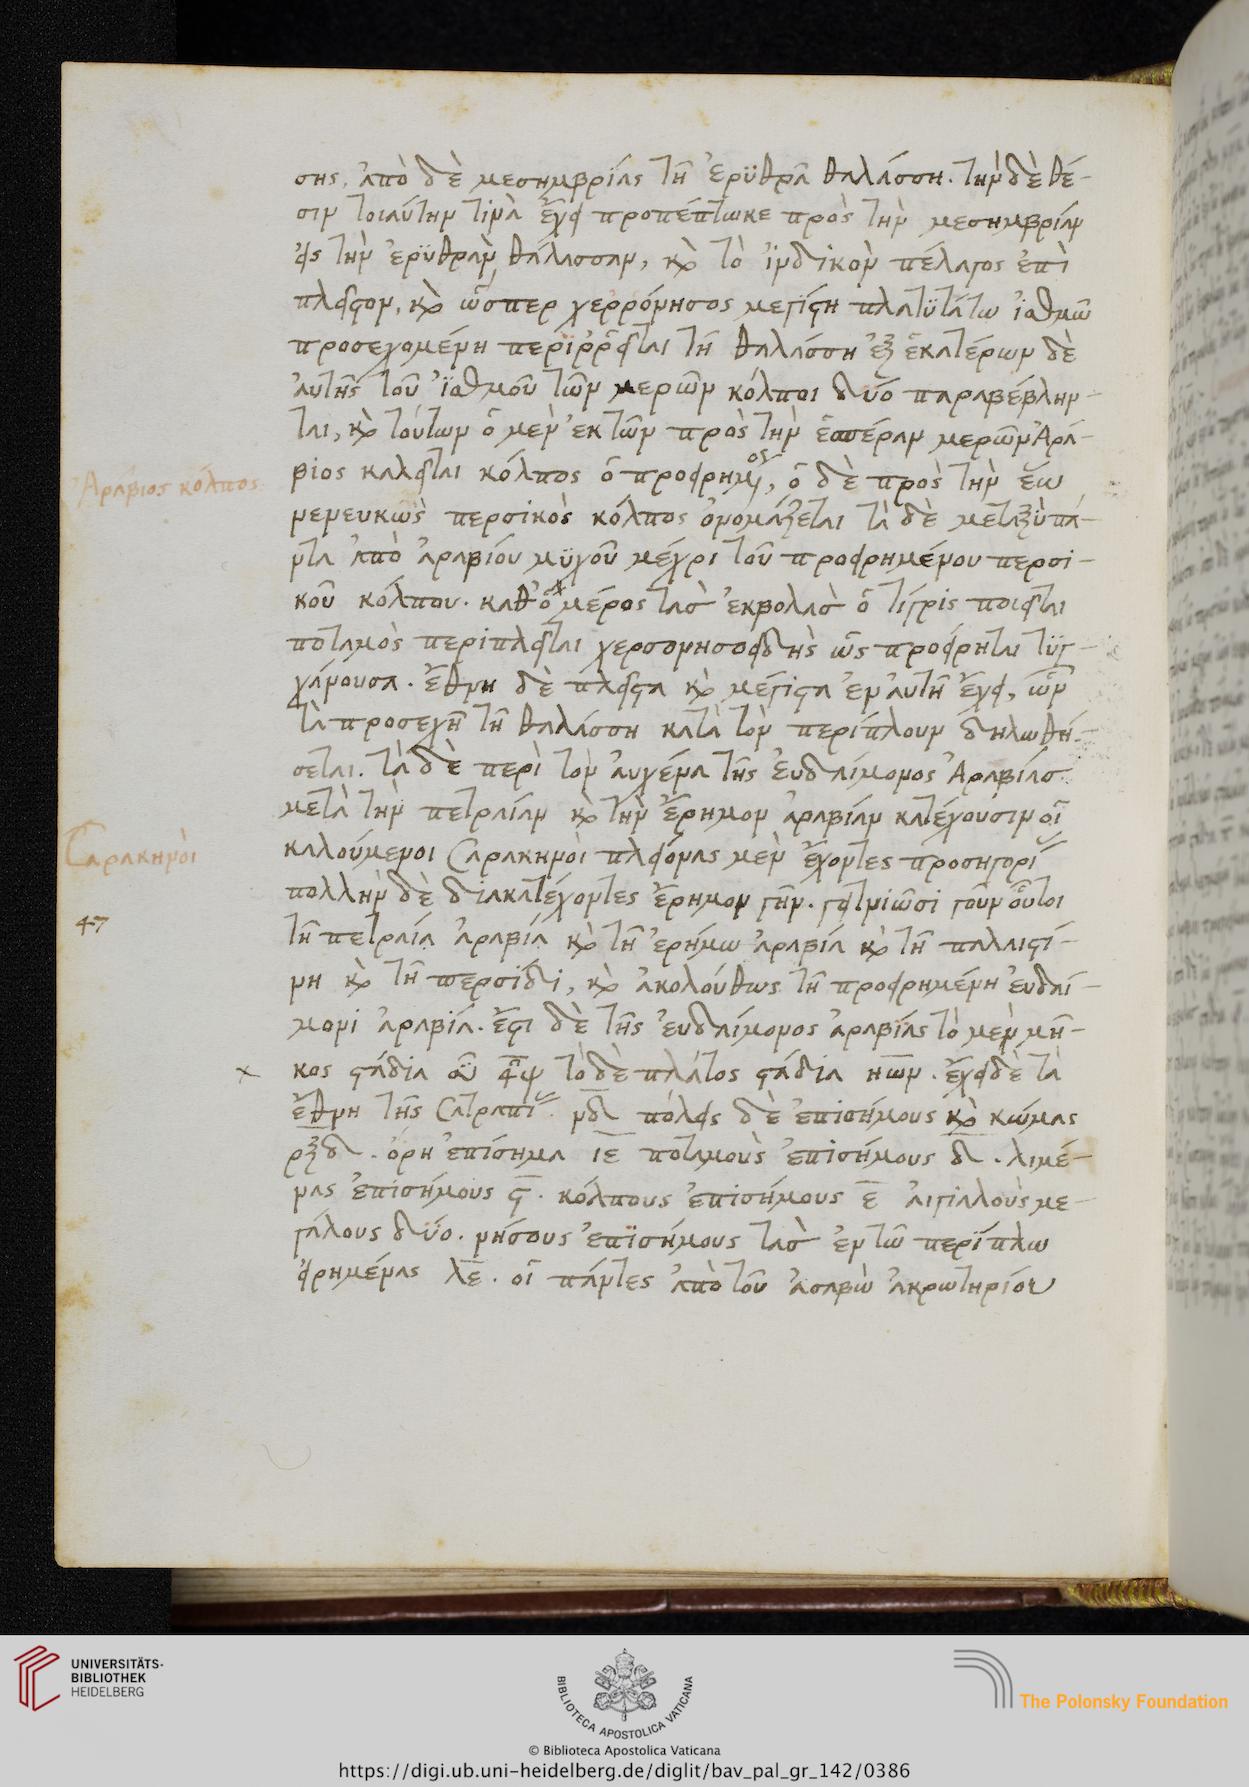 σης. ἀπὸ δὲ μεσημβρίας τῆ ἐρϋθρᾶ θαλάσση. τὴν δὲ θέ-
σιν τοιαύτην τινὰ ἔχει προπέπτωκε πρὸς τὴν μεσημβρίαν
εἰς τὴν ἐρϋθρὰν θάλασσαν, καὶ τὸ ἰνδικὸν πέλαγος ἐπὶ
πλεῖστον, καὶ ὥσπερ χερρόνησος μεγίστη πλατϋτάτω ἰσθμῶ
προσεχομένη περιῤῥεῖται τῆ θαλάσση ἐξ ἑκατέρων δὲ
αὐτῆς τοῦ ἰσθμοῦ τῶν μερῶν κόλποι δύο παραβέβλην-
ται, καὶ τούτων ὁ μὲν ἐκ τῶν πρὸς τὴν ἑσπέραν μερῶν Ἀρά-
Ἀράβιος κόλπος
βιος καλεῖται κόλπος ὁ προειρημος, ὁ δὲ πρὸς τὴν ἕω
νενευκὼς περσικὸς κόλπος ὀνομάζεται τὰ δὲ μεταξὺ πά-
ντα ἀπὸ ἀραβίου μϋχοῦ μέχρι τοῦ προειρημένου περσι-
κοῦ κόλπου. καθ' ὃ μέρος τὰσ ἐκβολὰσ ὁ τίγρις ποιεῖται
ποταμὸς περιπλεῖται χερσονησοειδὴς ὡς προείρηται τϋγ-
χάνουσα. ἔθνη δὲ πλεῖστα καὶ μέγιστα ἐν αὐτῆ ἔχει, ὧν
τὰ προσεχῆ τῆ θαλάσση κατὰ τὸν περίπλουν δηλωθή-
σεται. τὰ δὲ περὶ τὸν αὐχένα τῆς εὐδαίμονος Ἀραβίασ
μετὰ τὴν πετραίαν καὶ τὴν ἔρημον ἀραβίαν κατέχουσιν οἱ
Σαρακηνοὶ
καλούμενοι Σαρακηνοὶ πλείονας μὲν ἔχοντες προσηγορί
πολλὴν δὲ διακατέχοντες ἔρημον γῆν. γειτνιῶσι γοῦν οὗτοι
47
τῆ πετραία ἀραβία καὶ τῆ ἐρήμω ἀραβία καὶ τῆ παλαιστί-
νη καὶ τῆ περσίδι, καὶ ἀκολούθως τῆ προειρημένη εὐδαί-
μονι ἀραβία. ἔστι δὲ τῆς εὐδαίμονος ἀραβίας τὸ μὲν μῆ-
κος στάδια τὸ δὲ πλάτος στάδια ἔχει δὲ τὰ
ἔθνη τῆς Σατραπί νδ πόλεις δὲ ἐπισήμους καὶ κώμας
ρξδ. ὄρη ἐπίσημα ιε ποταμοὺς ἐπισήμους δ. λιμέ-
νας ἐπισήμους ϛ. κόλπους ἐπισήμους ε αἰγιαλοὺς με-
γάλους δύο. νήσους ἐπϊσήμους τὰσ ἐν τῶ περίπλω
εἰρημένας λε. οἱ πάντες ἀπὸ τοῦ ἀσαβὼ ἀκρωτηρίου
UNIVERSITÄTS-
BIBLIOTHEK
HEIDELBERG
BIBLIOTECA APOSTOLICA VATICANA
The Polonsky Foundation
© Biblioteca Apostolica Vaticana
https://digi.ub.uni-heidelberg.de/diglit/bav_pal_gr_142/0386